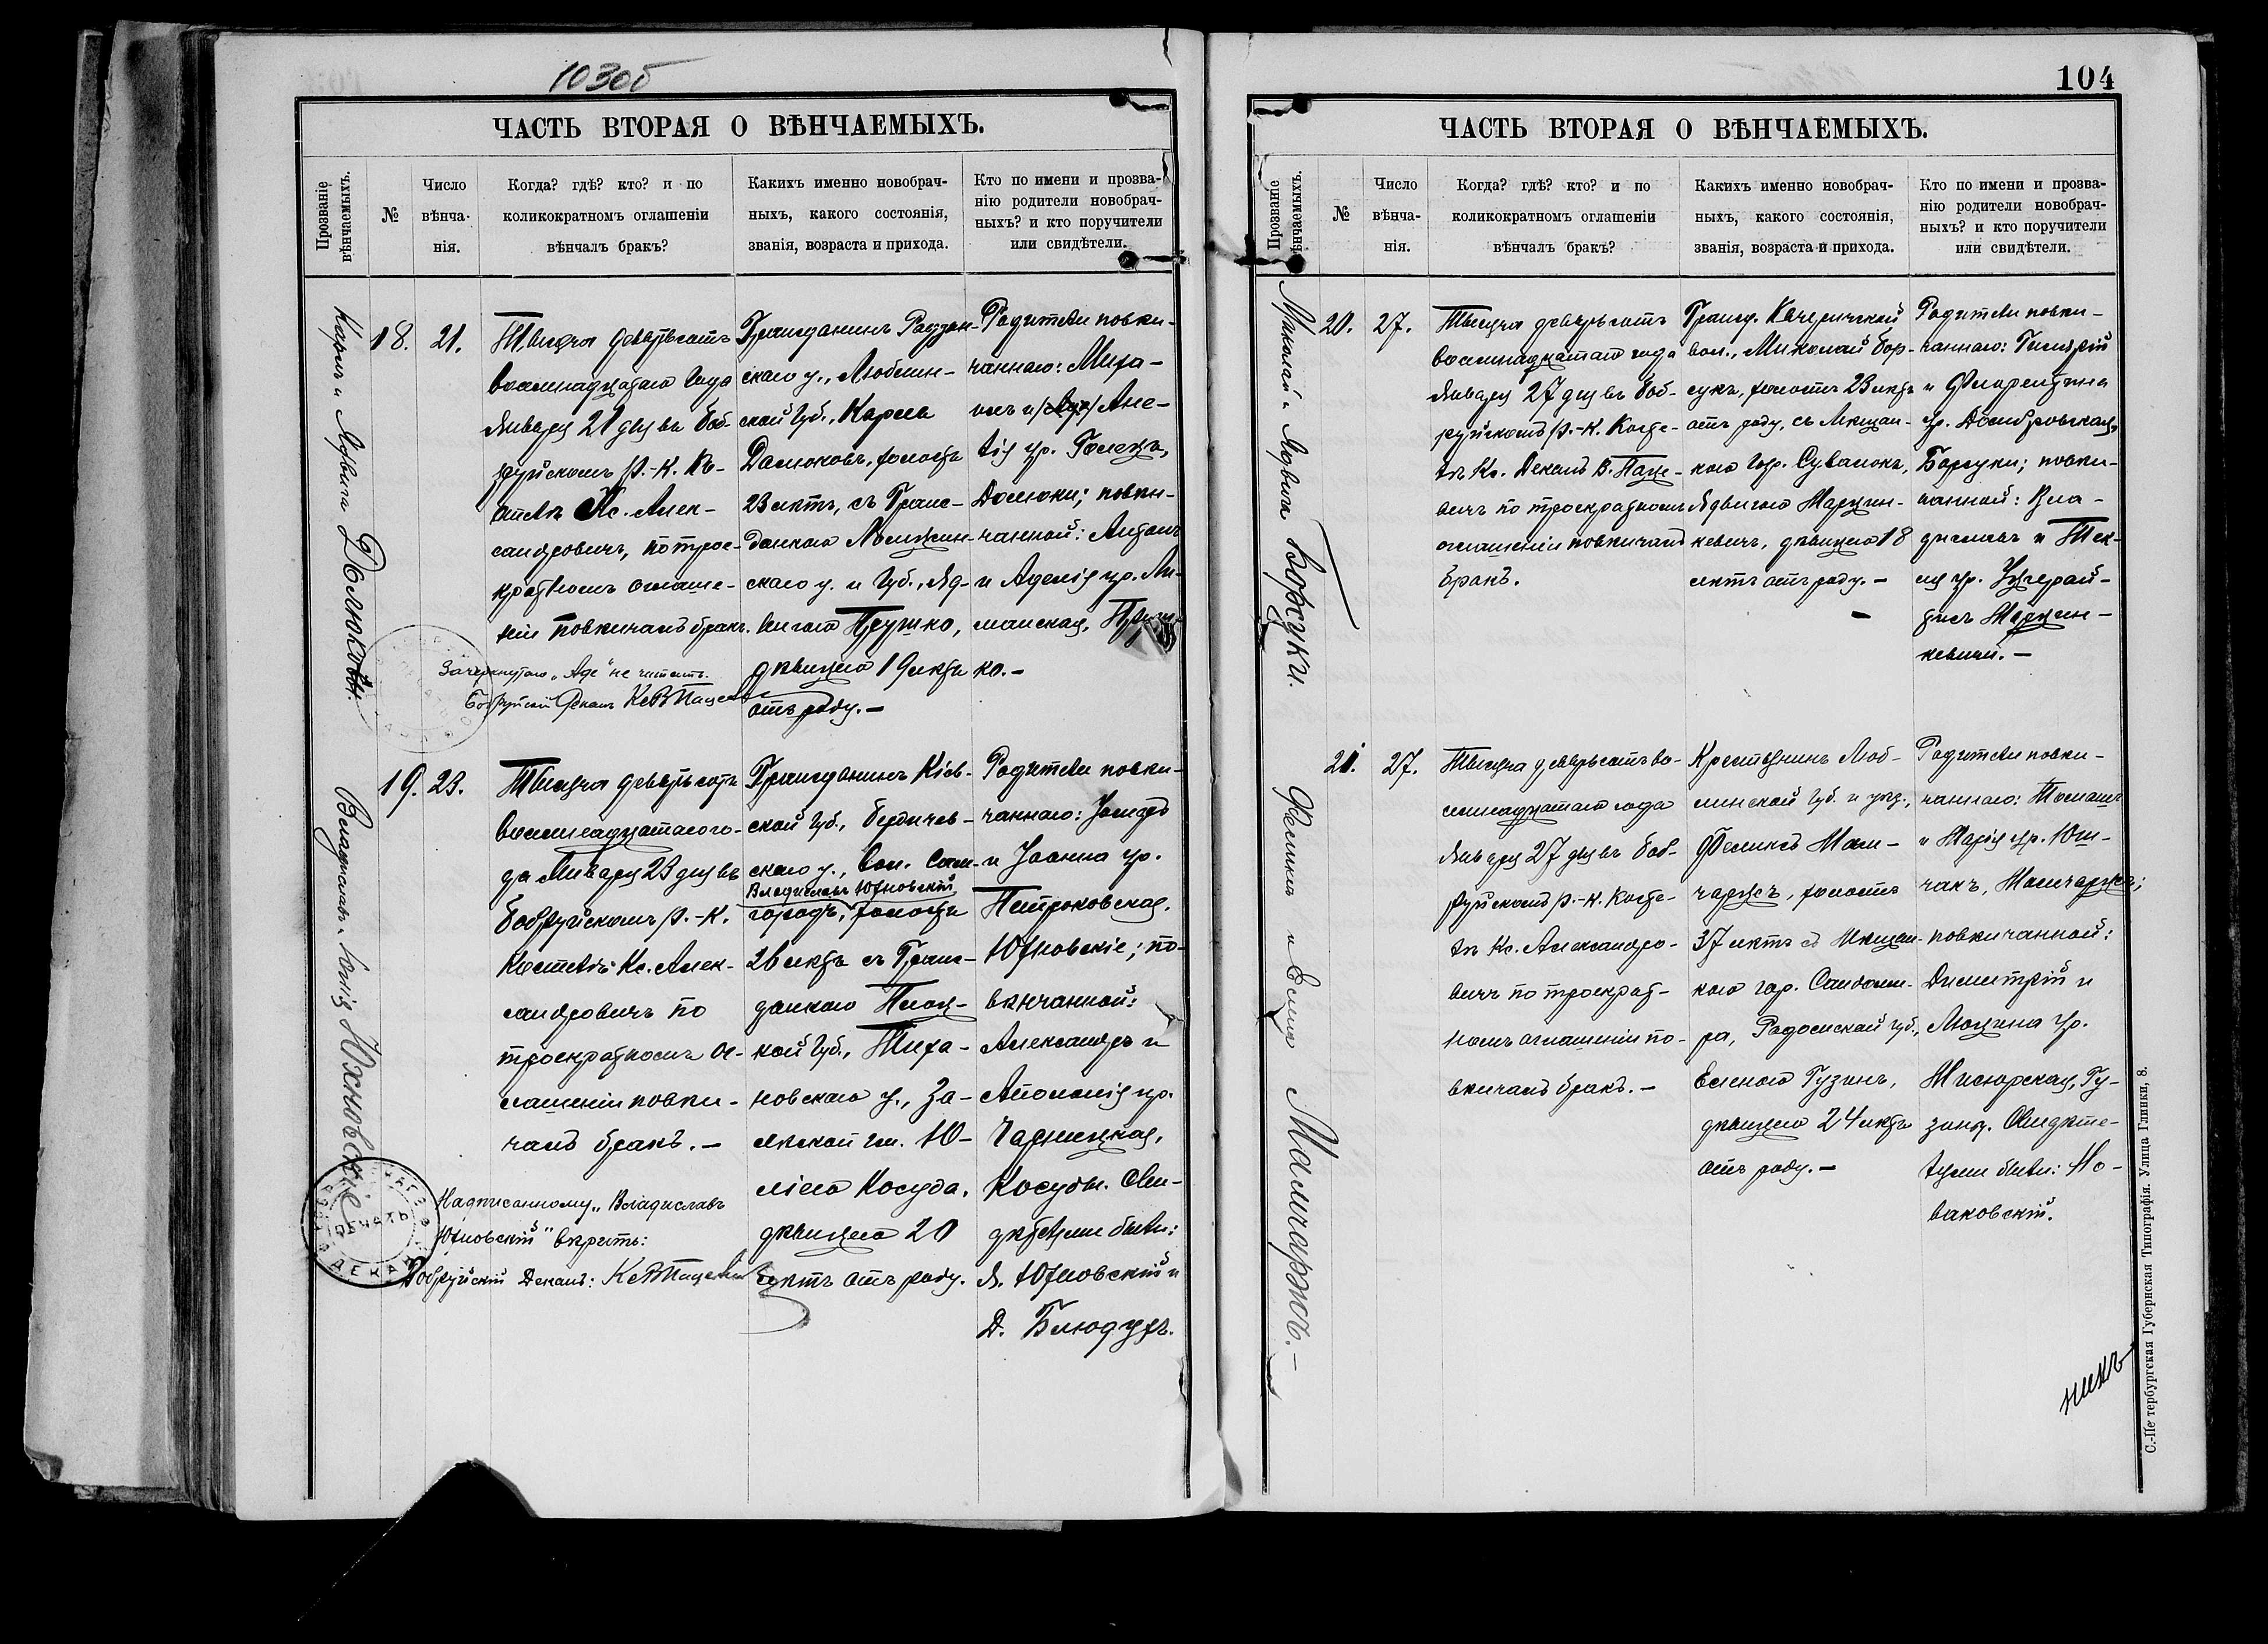 103об
ЧАСТЬ ВТОРАЯ О ВѢНЧАЕМЫХЪ.
Прозваніе
вѣнчаемыхъ.
№
Число
вѣнча-
нія.
Когда? гдѣ? кто? и по
коликократномъ оглашеніи
вѣнчалъ бракъ?
Какихъ именно новобрач-
ныхъ, какого состоянія,
званія, возраста и прихода.
Кто по имени и прозва-
нію родители новобрач-
ныхъ? и кто поручители
или свидѣтели.
Карлъ и Ядвига Долюковы.
18.
21.
Тысяча девятьсотъ
восемнадцатаго года
Января 21 дня въ Боб-
руйскомъ р.-к. Ко-
стелѣ Кс. Алек-
сандровичъ, по трое-
кратномъ оглаше-
ніи повѣнчалъ бракъ.
Гражданинъ Радзин-
скаго у., Люблин-
ской губ., Карлъ
Долюковъ, холостъ
23 лѣтъ, съ Граж-
данкою Ломжин-
скаго у. и губ., Яд-
вигою Прушко,
дѣвицею 19 лѣтъ
отъ роду. —
Родители повѣн-
чаннаго: Миха-
илъ и /Аде/ Ане-
лія ур. Голецъ,
Долюки; повѣн-
чанной: Антонъ
и Аделія ур. Ли-
манская,
ко. —
Зачеркнутаго „Аде" не читать.
Бобруйскій Деканъ Кс В Пацевичъ
Владиславъ и Юлія Юхновскіе
19.
23.
Тысяча девятьсотъ
восемнадцатаго го-
да Января 23 дня въ
Бобруйскомъ р.-к.
Костелѣ Кс. Алек-
сандровичъ по
троекратномъ ог-
лашеніи повѣн-
чалъ бракъ. —
Гражданинъ Кіев-
ской губ., Бердичев-
скаго у., Вол. Сам-
Владиславъ Юхновскій,
городъ, холостъ
26 лѣтъ съ Граж-
данкою Плоц-
кой губ.,
новскаго у., За-
гм. Ю-
ліею Косуда,
дѣвицею 20
лѣтъ отъ роду.
Родители повѣн-
чаннаго: Іосифъ
и Іоанна ур.
Петроковская,
Юхновскіе; по-
вѣнчанной:
Александръ и
Аполонія ур.
Чарнецкая,
Косуды. Сви-
дѣтели были:
Я. Юхновскій и
Д. Блюдухъ.
Надписанному „Владиславъ
Юхновскій" вѣрить:
Бобруйскій Деканъ: Кс В Пацевичъ
104
ЧАСТЬ ВТОРАЯ О ВѢНЧАЕМЫХЪ.
Прозваніе
вѣнчаемыхъ.
№
Число
вѣнча-
нія.
Когда? гдѣ? кто? и по
коликократномъ оглашеніи
вѣнчалъ бракъ?
Какихъ именно новобрач-
ныхъ, какого состоянія,
званія, возраста и прихода.
Кто по имени и прозва-
нію родители новобрач-
ныхъ? и кто поручители
или свидѣтели.
Николай и Ядвига Борсуки.
20.
27.
Тысяча девятьсотъ
восемнадцатаго года
Января 27 дня въ Боб-
руйскомъ р.-к. Косте-
лѣ Кс. Деканъ В. Паце-
вичъ по троекратномъ
оглашеніи повѣнчалъ
бракъ.
Гражд. Качеричской
вол., Николай Бор-
сукъ, холостъ 23 лѣтъ
отъ роду, съ Мѣщан-
кою гор. Сувалокъ,
Ядвигою Марцин-
кевичъ, дѣвицею 18
лѣтъ отъ роду. —
Родители повѣн-
чаннаго: Гиляръ
и Флорентина
ур. Домбровская,
Борсуки; повѣн-
чанной: Вла-
диславъ и Тек-
ля ур.
дисъ Марцин-
кевичи. —
Феликсъ и Елена Малчаржъ. —
21.
27.
Тысяча девятьсотъ во-
семнадцатаго года
Января 27 дня въ Боб-
руйскомъ р.-к. Косте-
лѣ Кс. Александро-
вичъ по троекрат-
номъ оглашеніи по-
вѣнчалъ бракъ. —
Крестьянинъ Люб-
линской губ. и уѣз.,
Феликсъ Мал-
чаржъ, холостъ
37 лѣтъ съ Мѣщан-
кою гор. Сандоми-
ра, Радомской губ.,
Еленою Гузинъ,
дѣвицею 24 лѣтъ
отъ роду. —
Родители повѣн-
чаннаго: Томашъ
и Марія ур. Юш-
чакъ, Малчаржъ;
повѣнчанной:
Димитрій и
Люцина ур.
Гу-
зины. Свидѣте-
лями были: Но-
ваковскій.
С.-Петербургская Губернская Типографія. Улица Глинки, 8.